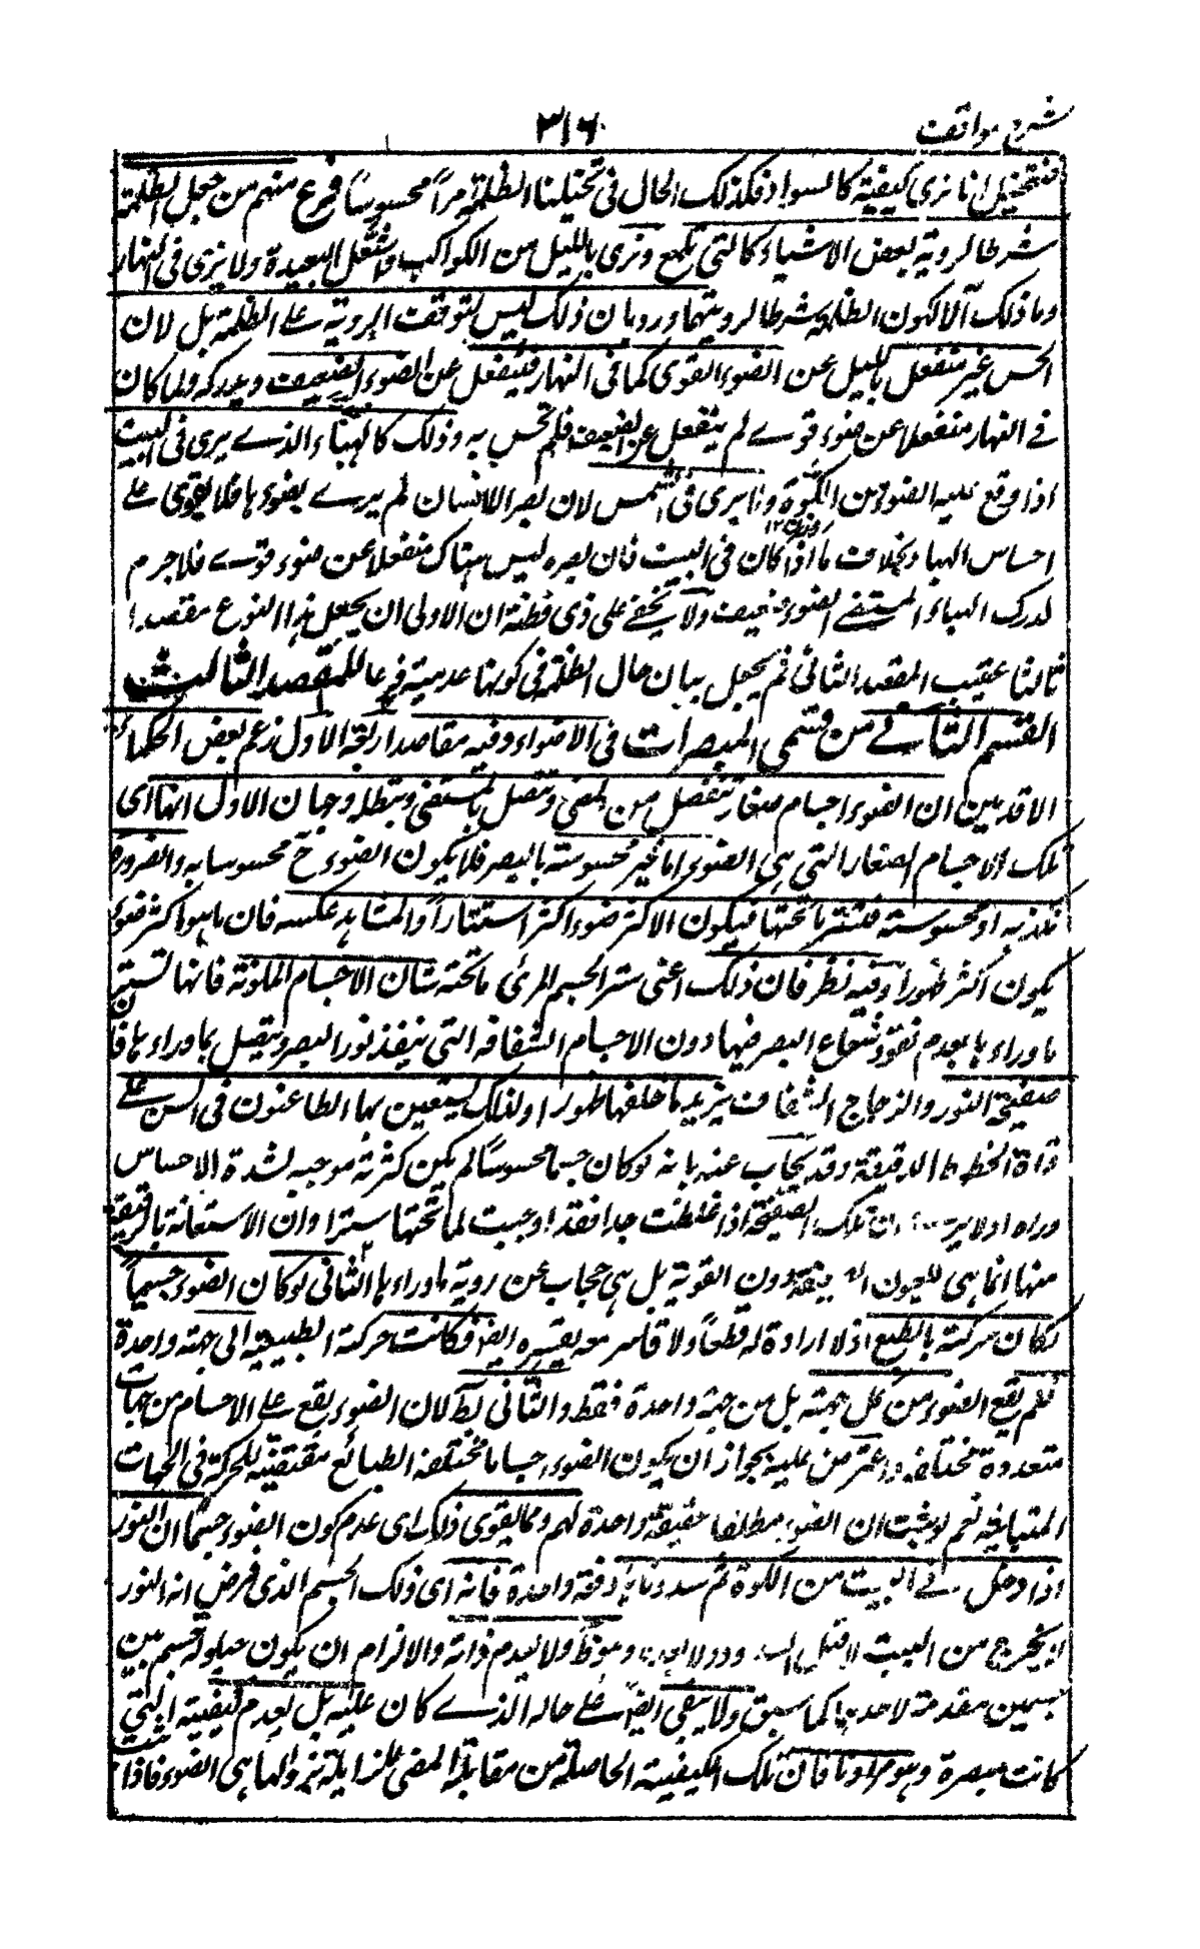 شرح مواقف
٣١٦
فنتخيل انا نرى كيفية كالسواد فكذلك الحال فى تخيلنا الظلمة امرا محسوسا فرع منهم من جعل الظلمة
شرطا لروية بعض الاشياء كالتى تلمع وترى بالليل من الكواكب والشعل البعيدة ولا يرى فى النهار
وما ذلك الا لكون الظلمة شرطا لرويتها ورد بان ذلك ليس لتوقف الروية على الظلمة بل لان
الحس غير منفعل بالليل عن الضوء القوى كما فى النهار فينفعل عن الضوء الضعيف ويدركه ولما كان
فى النهار منفعلا عن ضوء قوے لم ينفعل عن الضعيف فلم تحس به وذلك كالهباء الذے يرى فى البيت
اذا وقع عليه الضوء من الكوة ولا يرى فى الشمس لان بصر الانسان لم يرے بضوءها فلا يقوى على
احساس الهباء بخلاف ما اذا كان فى البيت فان بصره ليس هناك منفعلا عن ضوء قوے فلا جرم
لدرك الهباء المستضے الضوء ضعيف ولا يخفے على ذى فطنة ان الاولى ان يجعل هذا النوع مقصدا
ثالثا عقيب المقصد الثانى ثم يجعل بيان حال الظلمة فى كونها عدمية فرعا للمقصد الثالث
القسم الثانے من قسمى المبصرات فى الاضواء وفيه مقاصد اربعة الاول زعم بعض الحكماء
الاقدمين ان الضوء اجسام صغار تنفصل من المضى وتتصل بالمستضى ويبطله وجهان الاول انها اى
تلك الاجسام الصغار التى هى الضوء اما غير محسوسة بالبصر فلا يكون الضوء ح محسوسا به والضرورة
تكذبه او محسوسة فتستر ما تحتها فيكون الاكثر ضوءا اكثر استتارا والمشاهد عكسه فان ما هو اكثر ضوء
يكون اكثر ظهورا وفيه نظر فان ذلك اعنى ستر الجسم المرئى ما تحته شان الاجسام الملونة فانها تستر
ما وراءها بعدم نفوذ شعاع البصر فيها دون الاجسام الشفافه التى ينفذ نور البصر ويتصل بما وراءها فان
صفيحة النور والزجاج الشفاف يزيد ما خلفها ظهورا ولذلك يستعين بها الطاعنون فى السن على
قراة الخطوط الدقيقة وقد يجاب عنه بانه لو كان جسما محسوسا لم يكن كثرته موجبه لشدة الاحساس
وراه ان تلك الصفيحة اذا غلظت جدا فقد اوجبت لما تحتها سترا وان الاستعانة بالرقيقة
منها انما هى للعيون دون القوية بل هى حجاب عن روية ما وراءها الثانى لو كان الضوء جسما
لكان حركته بالطبع اذ لا ارادة له قطعا ولا قاسر معه يقسره ايضا فكانت حركة الطبيعية الى جهة واحدة
فلم يقع الضوء من كل جهة بل من جهة واحدة فقط والثانى بط لان الضوء يقع على الاجسام من جهات
متعددة مختلفه واعترض عليه بجواز ان يكون الضوء اجساما مختلفه الطبائع مقتضيه للحركة فى الجهات
المتباينه نعم لو ثبت ان الضوء مطلقا حقيقة واحدة لهم ومما يقوى ذلك اى عدم كون الضوء جسما ان النور
اذا دخل فے البيت من الكوة ثم سددناها دفعة واحدة فانه اى ذلك الجسم الذى فرض انه النور
لا يخرج من البيت ولا يعدم ذاته والا لزام ان يكون حيلولة جسم بين
جسمين معدمة لاحدهما كما سبق ولا يبقى ايضا على حاله الذے كان عليه بل يعدم كيفيته التى
كانت مبصرة وهو مرادنا فان تلك الكيفية الحاصلة من مقابلة المضى الزايلة بزوالها هى الضوء فاذا ثبت